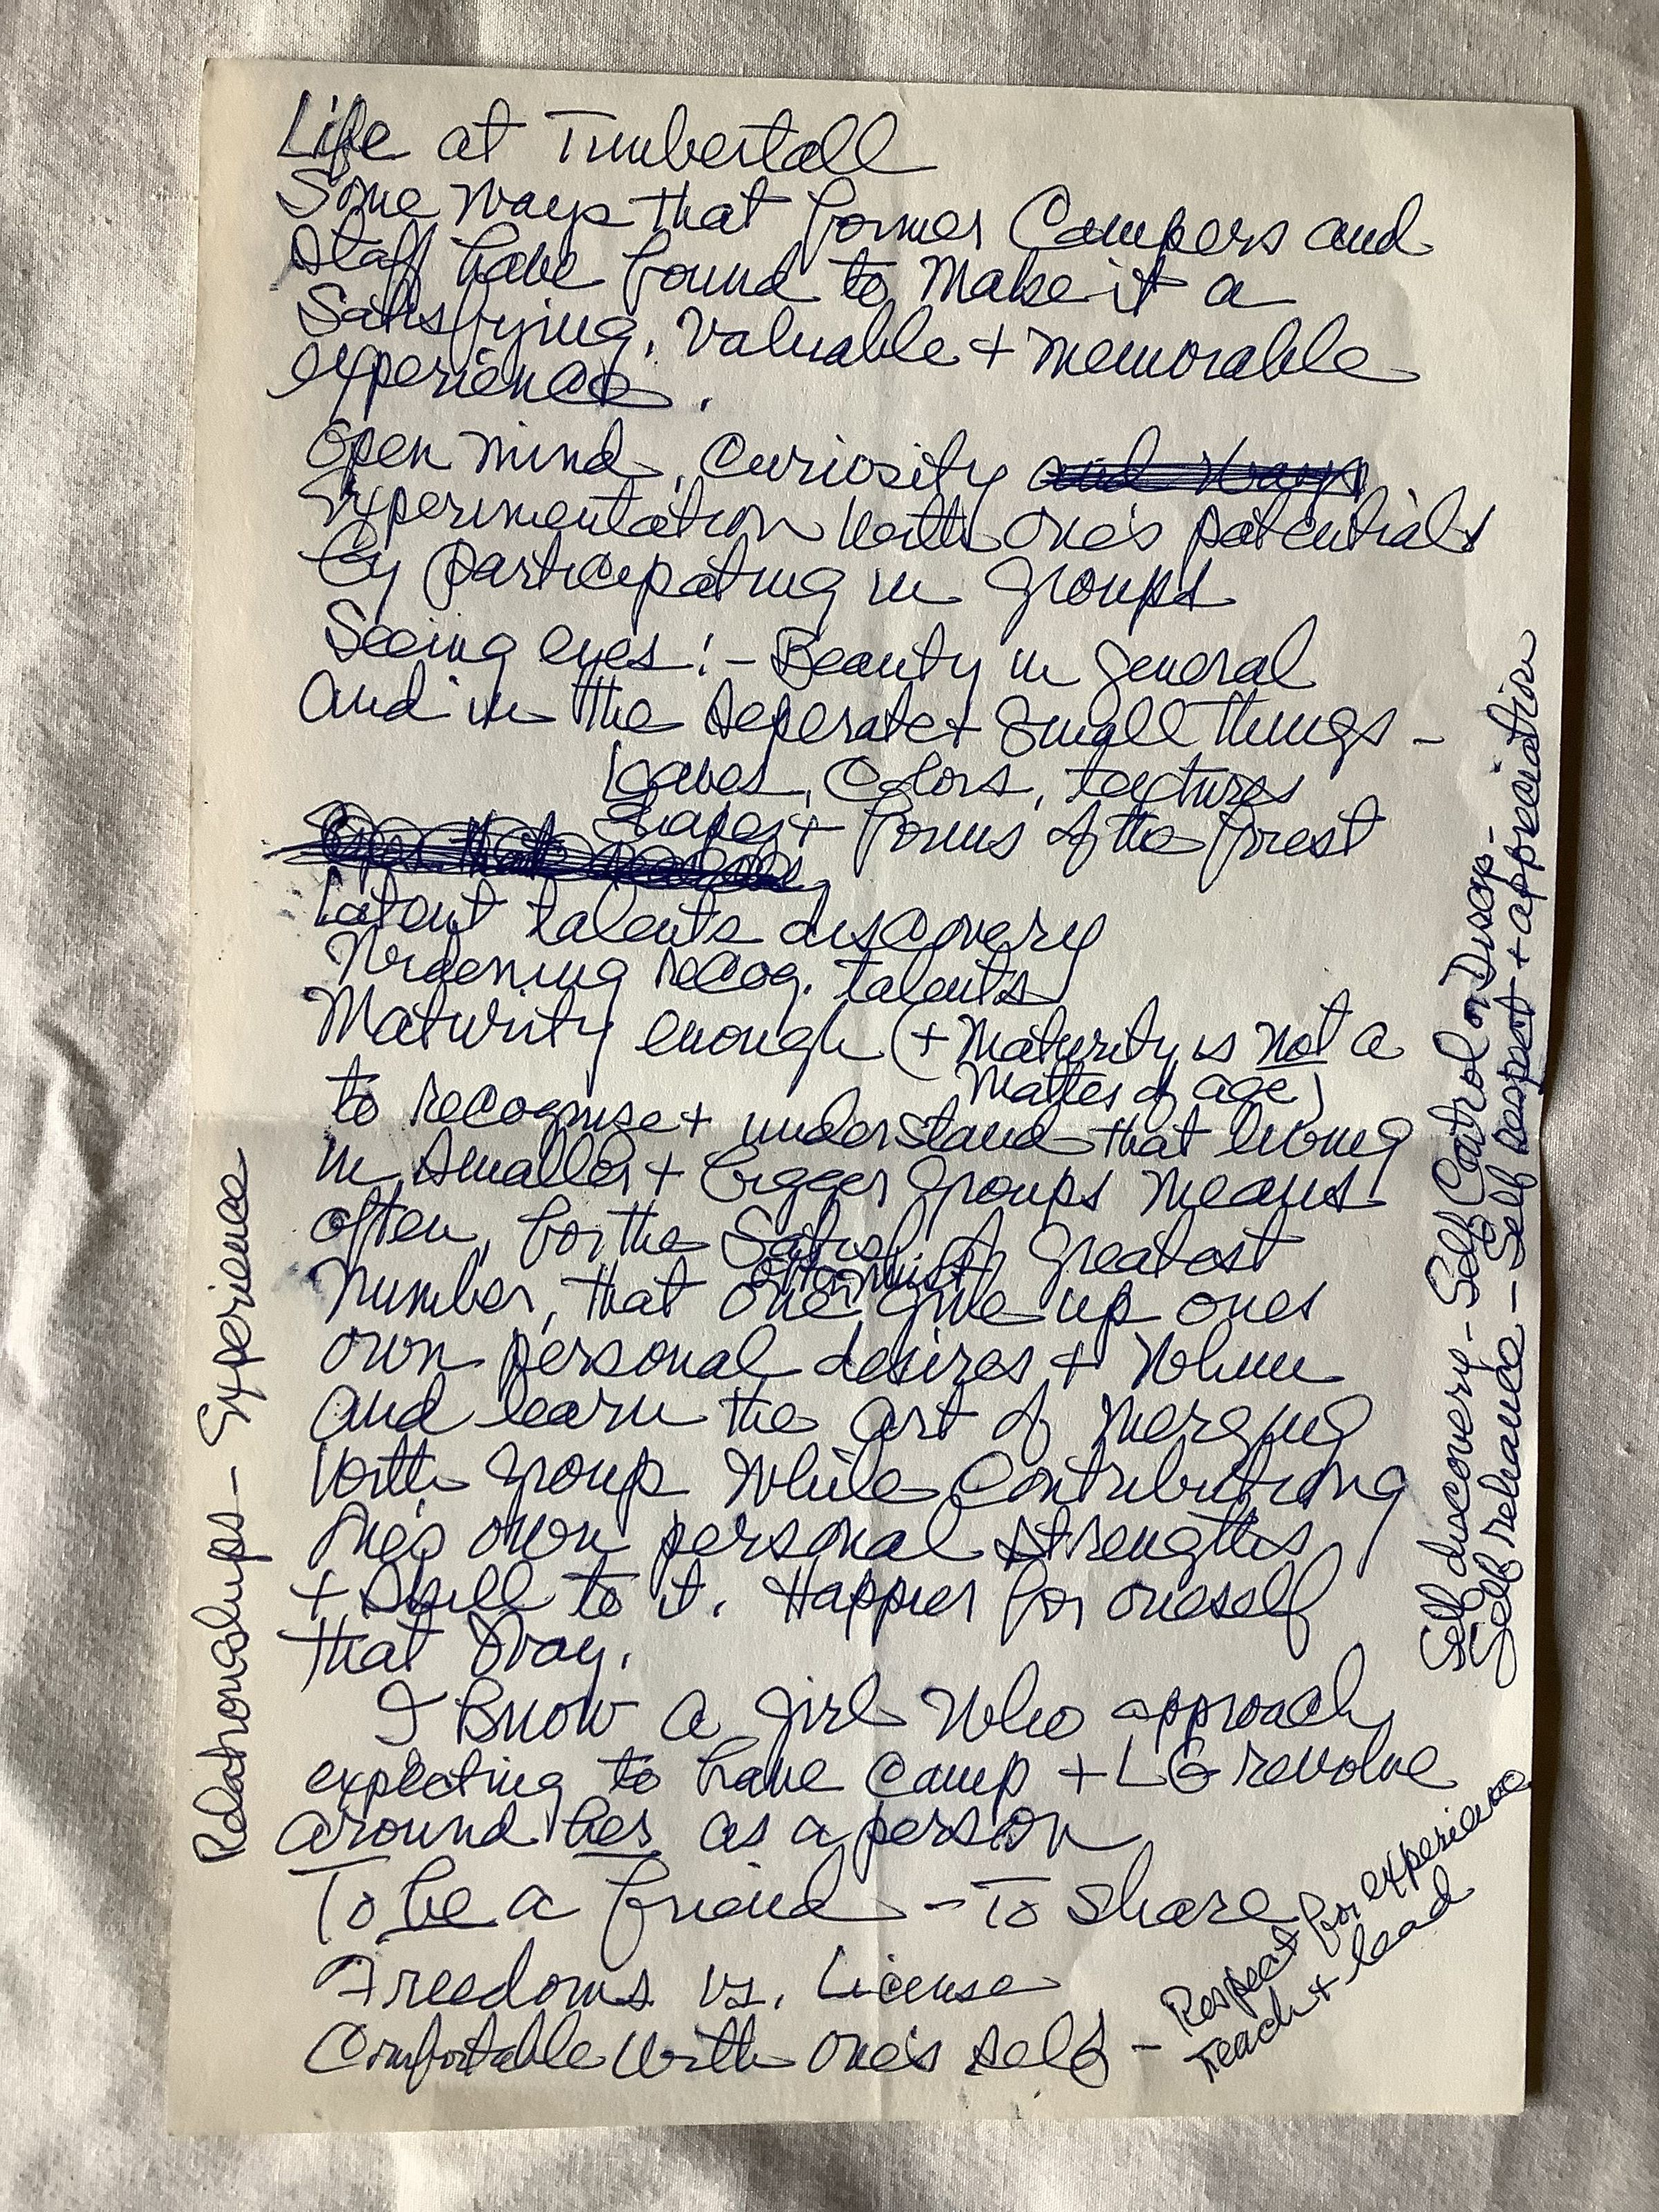 Life at Timbertall
Some ways that former Campers and
staff have found to make it a
Satisfying, valuable + memorable
experience.
Open mind, Curiosity
Experimentation with one's potentials
by participating in groups
Seeing eyes! - Beauty in general
and in the seperate + small things -
leaves, Colors, textures
Shapes + forms of the forest
Latent talents discovery
recog. talents
Maturity enough (+ Maturity is not a
Matter of age)
to recognise + understand that living
in smaller + bigger groups means
often, for the of greatest
Number, that one give up ones
own personal desires +
and learn the art of merging
with group while Contributing
one's own personal strengths
+ skill to it. Happier for oneself
that way.
I know a girl who approach
expecting to have camp + LG revolve
around her as a person
To be a friend - To share
Freedoms vs. License
Comfortable with one's self -
Respect for experience
teach + lead
Relationaships - Experience
Self discovery - Self Control or Discip -
Self reliance - Self respect + appreciation